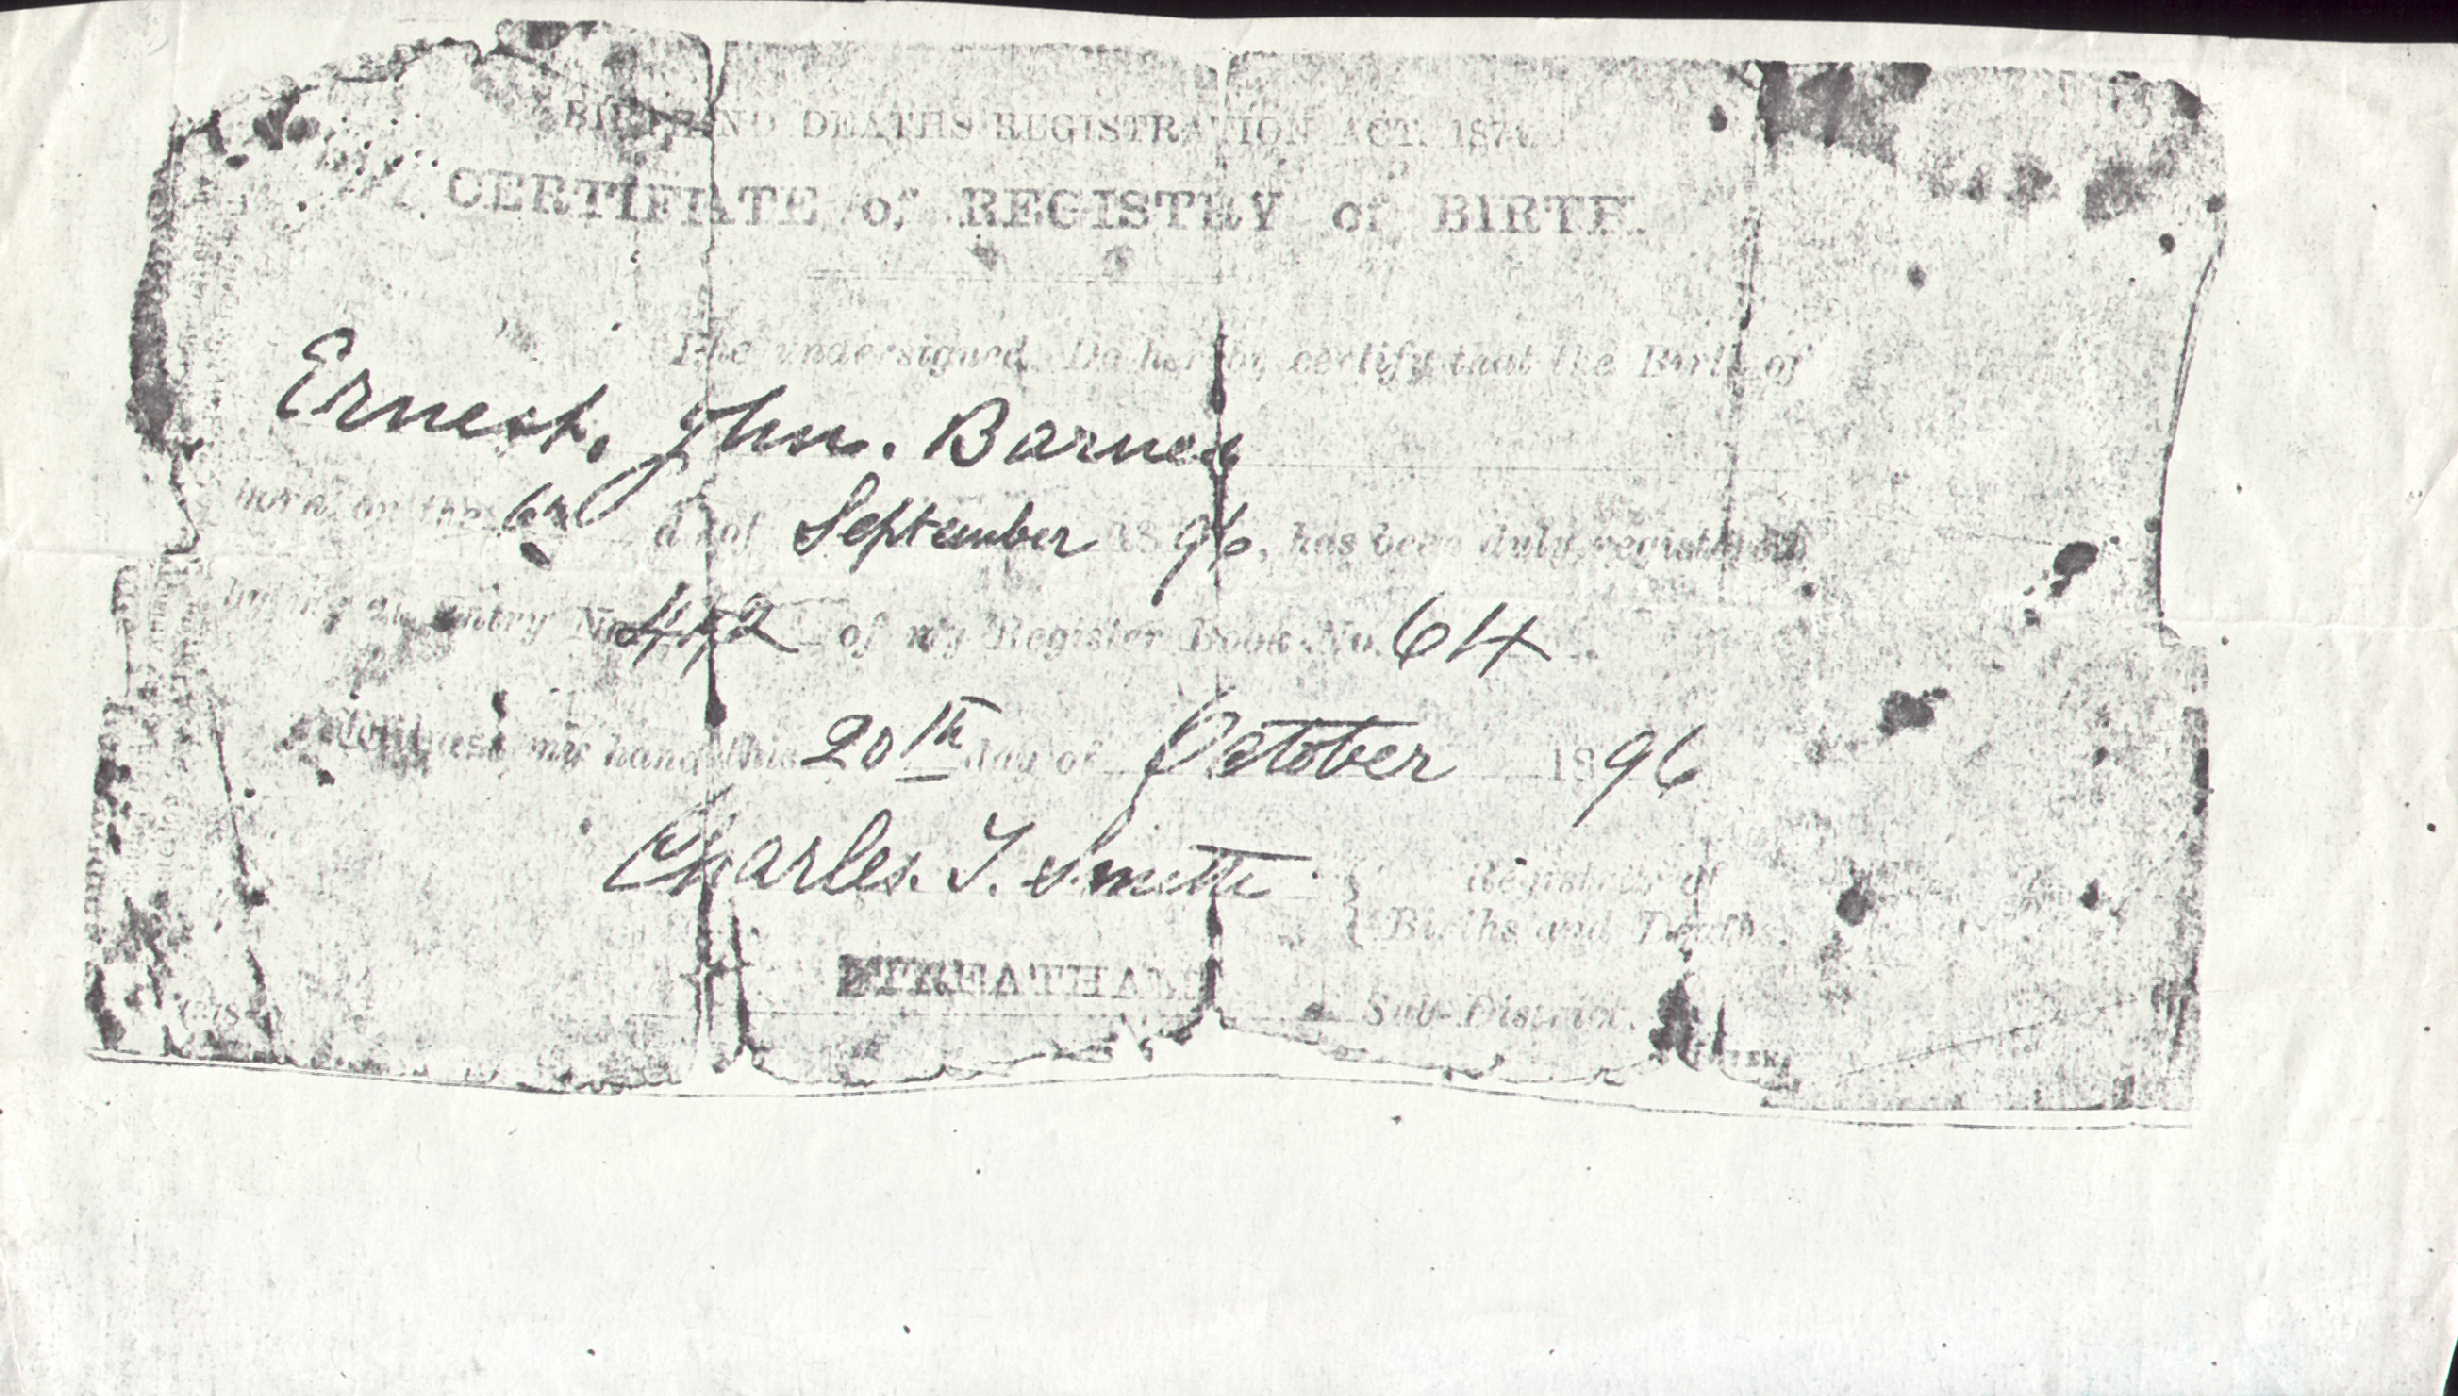 BIRTHS AND DEATHS REGISTRATION ACT, 1874.
CERTIFICATE of REGISTRY of BIRTH.
I, the undersigned, Do hereby certify that the Birth of
Ernest, John. Barnes
born on the 6th day of September 1896, has been duly registered
by an entry No. of my Register Book No. 64
Witness my hand this 20th day of October 1896
Charles. T. Smith Registrar of
Births and Deaths.
STREATHAM Sub-District.